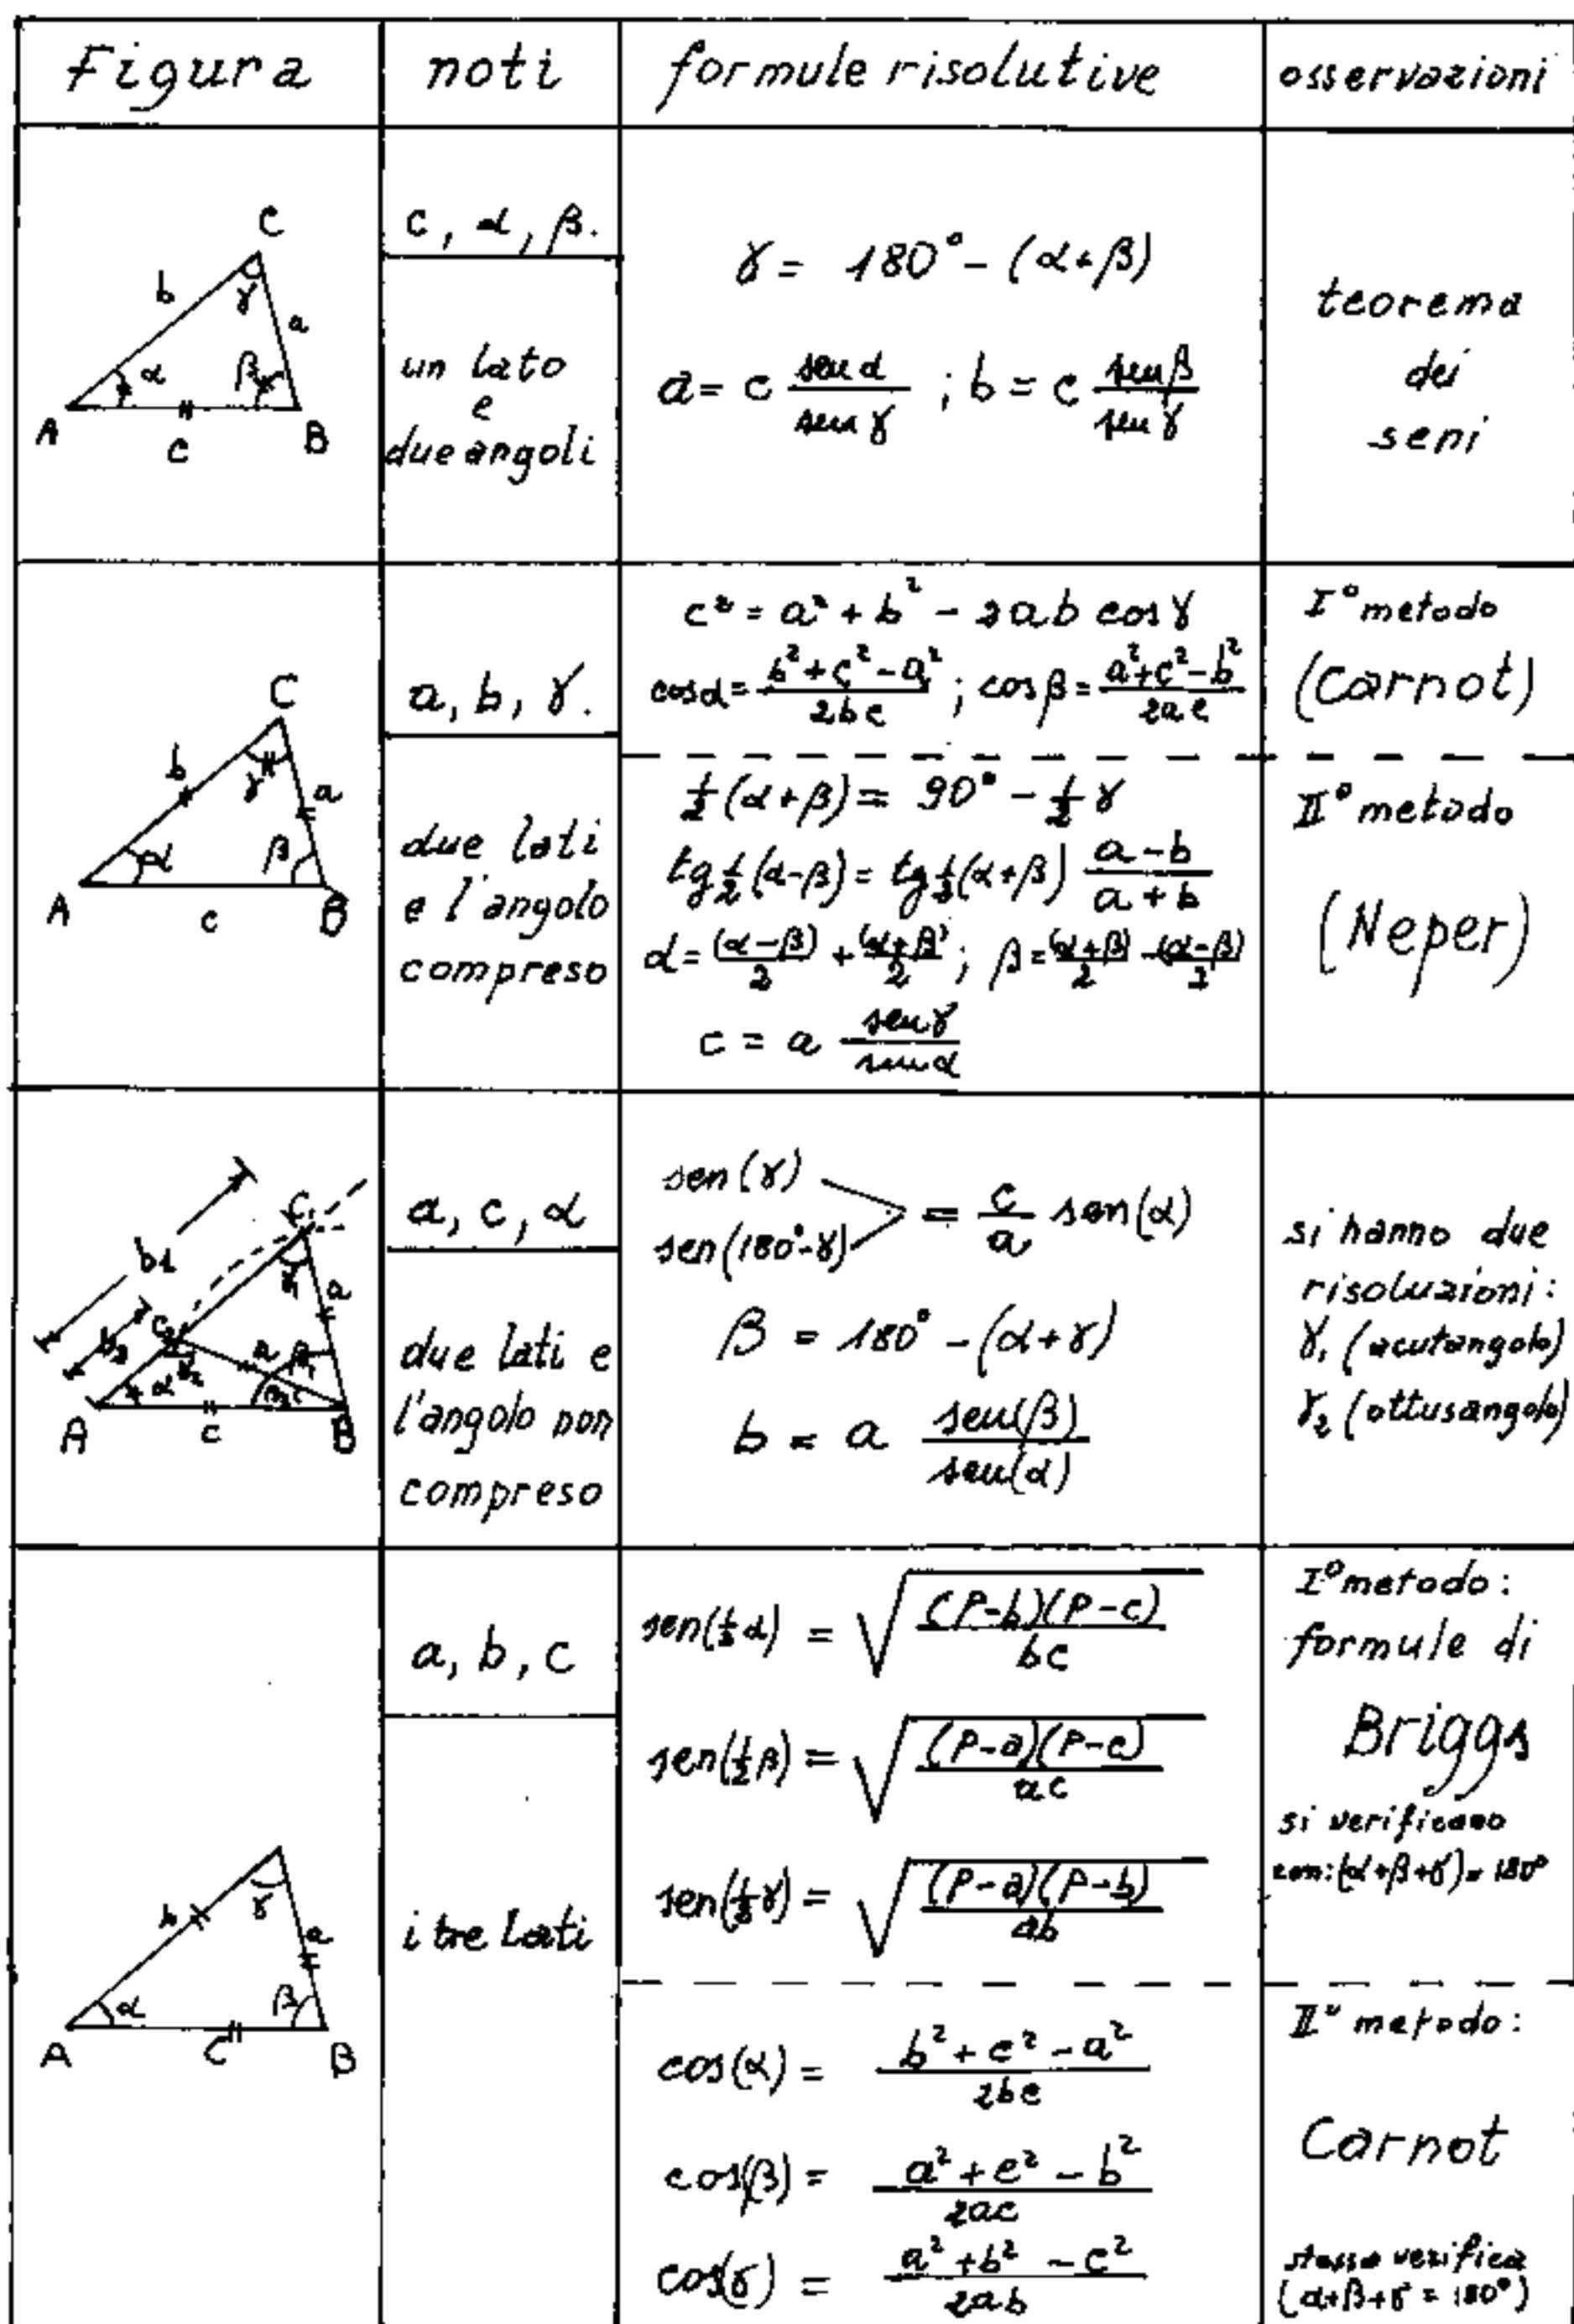 Figura noti formule risolutive osservazioni
C
b γ a
α β
A c B
c, α, β.
un lato
e
due angoli
γ = 180° - (α+β)
a = c sen α / sen γ ; b = c sen β / sen γ
teorema
dei
seni
C
b γ a
α β
A c B
a, b, γ.
due lati
e l'angolo
compreso
c² = a² + b² - 2ab cos γ
cos α = b²+c²-a² / 2bc ; cos β = a²+c²-b² / 2ac
I° metodo
(Carnot)
½(α+β) = 90° - ½γ
tg ½(α-β) = tg ½(α+β) a-b / a+b
α = (α-β)/2 + (α+β)/2 ; β = (α+β)/2 - (α-β)/2
c = a sen γ / sen α
II° metodo
(Neper)
C₁
b₁ γ₁ a
b₂ C₂ a β₁
α γ₂ β₂
A c B
a, c, α
due lati e
l'angolo non
compreso
sen(γ)
sen(180°-γ) = c/a sen(α)
β = 180° - (α+γ)
b = a sen(β) / sen(α)
si hanno due
risoluzioni:
γ₁ (acutangolo)
γ₂ (ottusangolo)
b γ a
α β
A C B
a, b, c
i tre lati
sen(½α) = √ (p-b)(p-c) / bc
sen(½β) = √ (p-a)(p-c) / ac
sen(½γ) = √ (p-a)(p-b) / ab
I° metodo:
formule di
Briggs
si verificano
con: (α+β+γ) = 180°
cos(α) = b² + c² - a² / 2bc
cos(β) = a² + c² - b² / 2ac
cos(γ) = a² + b² - c² / 2ab
II° metodo:
Carnot
stessa verifica
(α+β+γ = 180°)